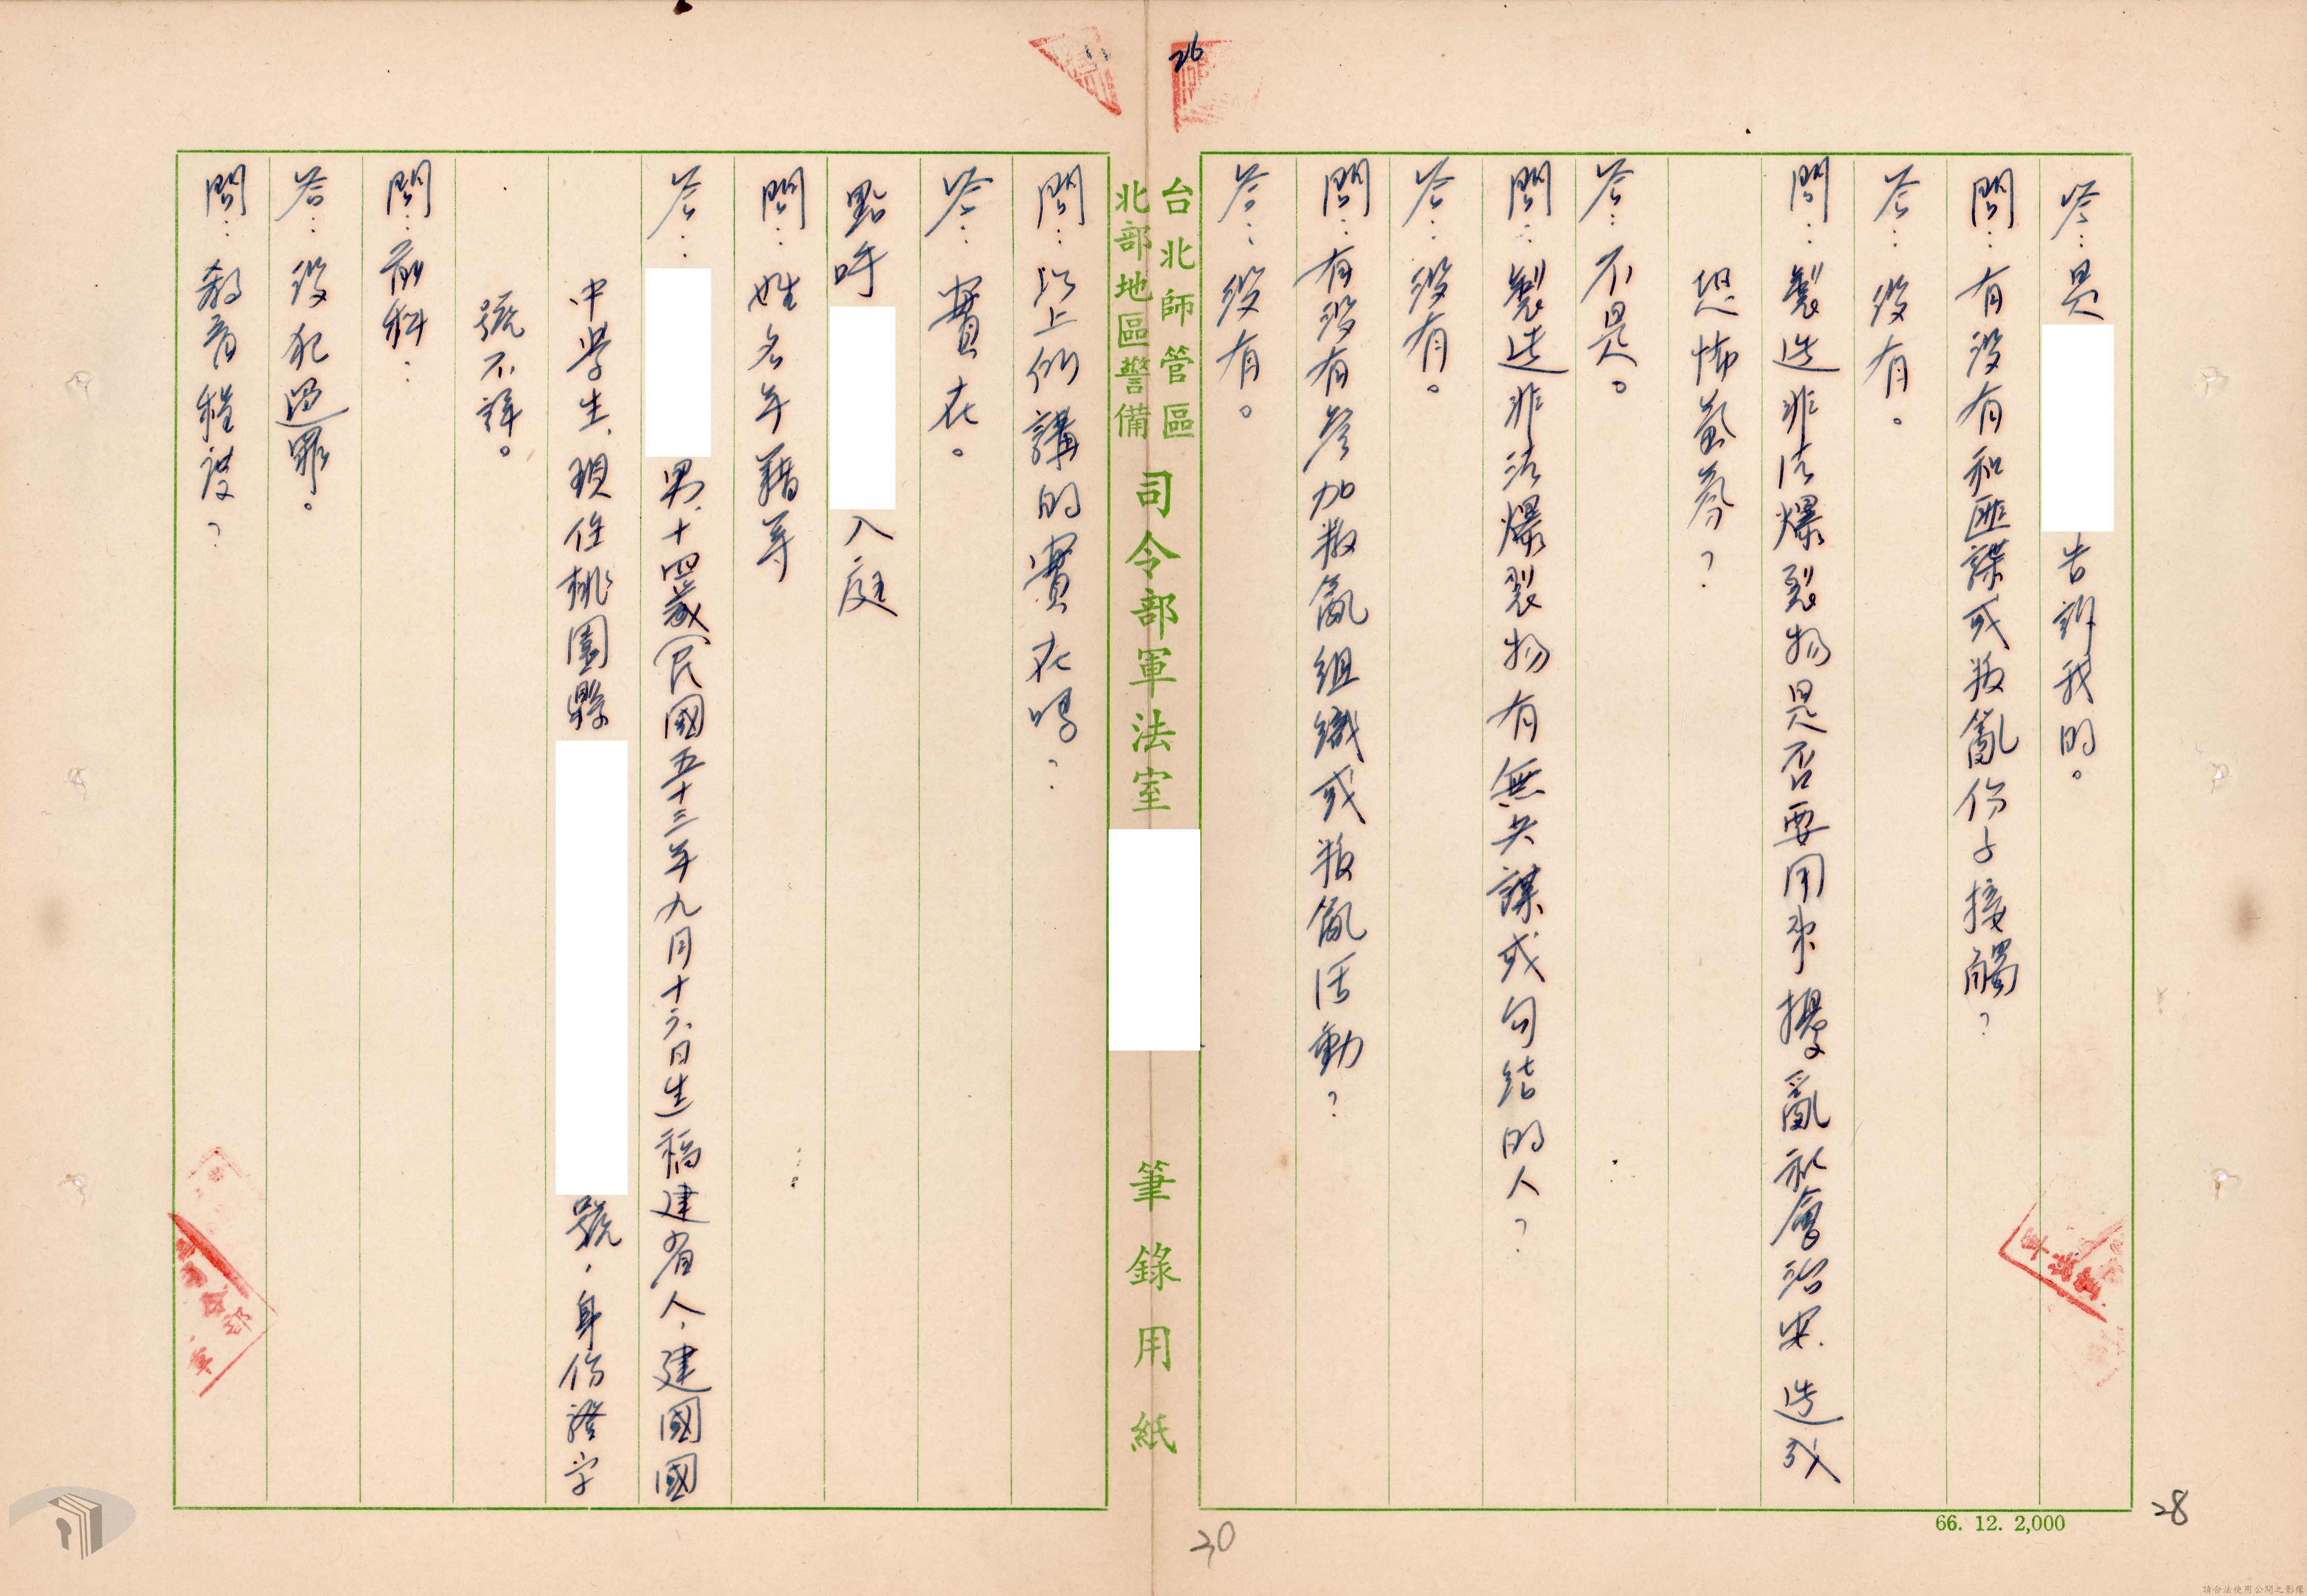 答：是
告訴我的。
問：有没有和匪諜或叛亂份子接觸？
答：没有。
問：製造非法爆裂物是否要用來擾亂社會治安.造成
恐怖氣氛？
答：不是。
問：製造非法爆裂物有無共謀或勾結的人？
答：没有。
問：有没有參加叛亂組織或叛亂活動？
答：没有。
台北師管區
北部地區警備
司令部軍法室
筆錄用紙
問：以上所講的實在嗎？
答：實在。
點呼
入庭
問：姓名年籍等
答：
男.十四歲(民國五十三年九月十六日生福建省人,建國國
中學生.現住桃園縣
號,身份證字
號不詳。
問：前科：
答：没犯過罪。
問：教育程度？
26
28
30
66. 12. 2,000
請合法使用公開之影像